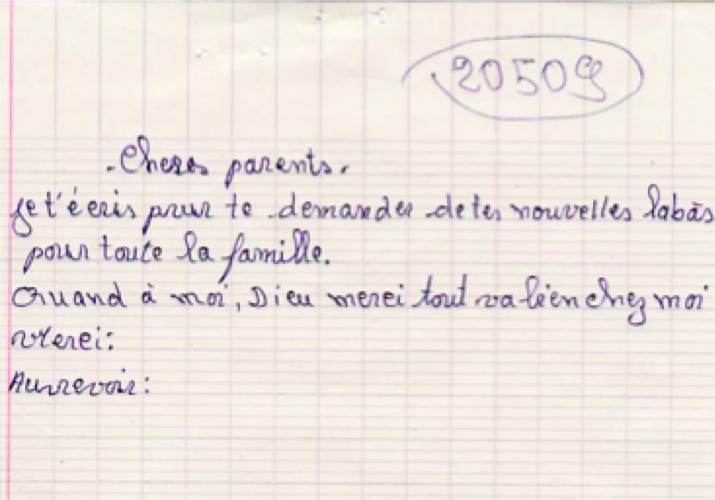 20509
Cheres parents,
je t'écris pour te demander de tes nouvelles labàs
pour toute la famille.
Quand à moi, Dieu merci tout va bien chez moi
Merci:
Aurrevoir: